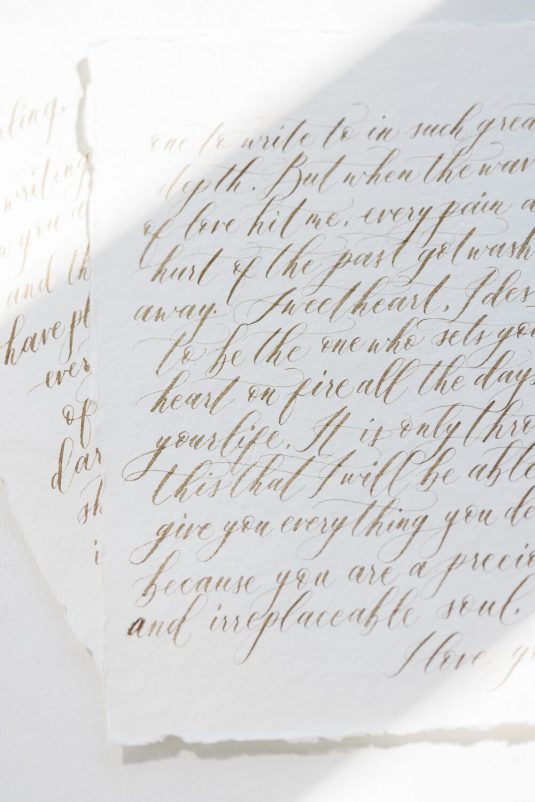 rling,
writing
w you a
and th
have pl
ever
of
dar
sh
i
one to write to in such grea
depth. But when the wav
of love hit me, every pain a
hurt of the past got wash
away. Sweetheart, I des
to be the one who sets you
heart on fire all the days
your life. It is only thro
this that I will be able
give you everything you de
because you are a precio
and irreplaceable soul.
I love yo